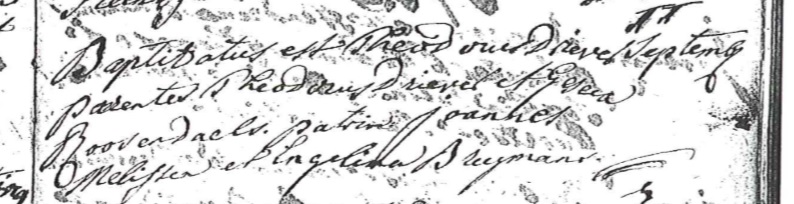 11
Baptizatus est Theodorus Drieves Septemb
parentes Theodorus Drieves et
Roosendaels. patrini Joannes
et Engelina Bruymans.
3